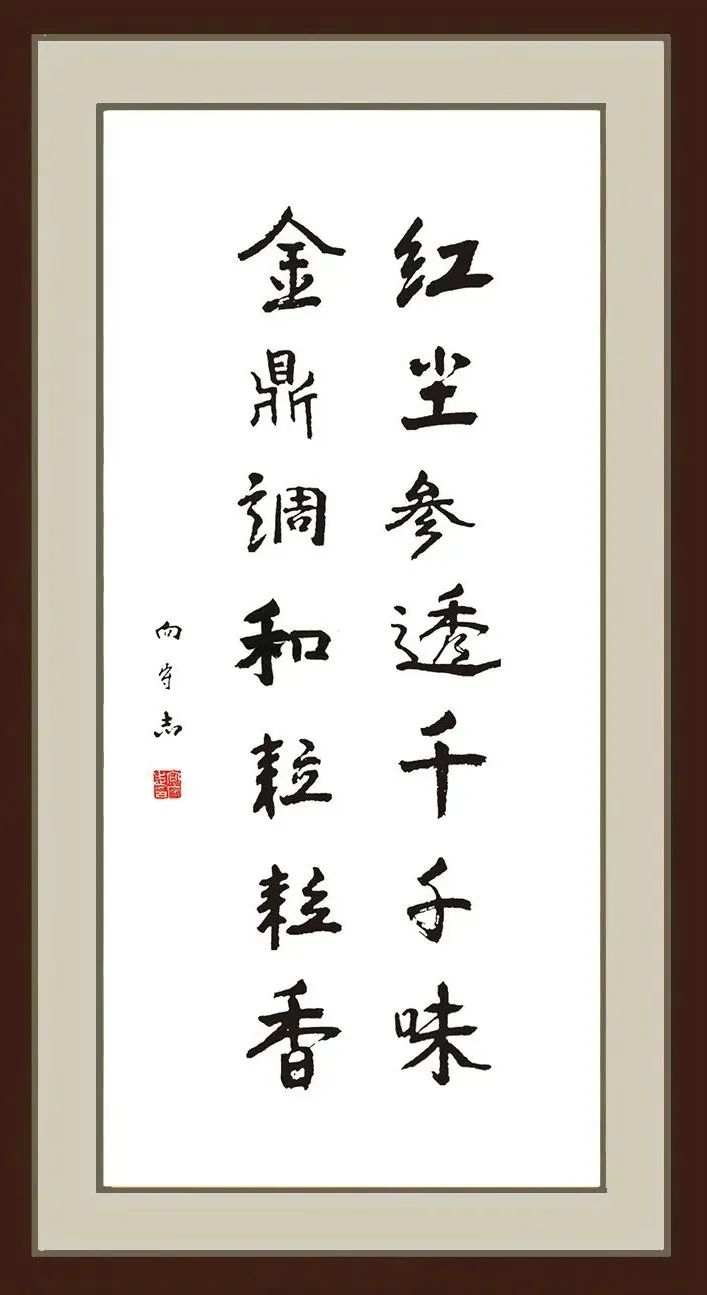 红尘参透千千味
金鼎調和粒粒香
向守志